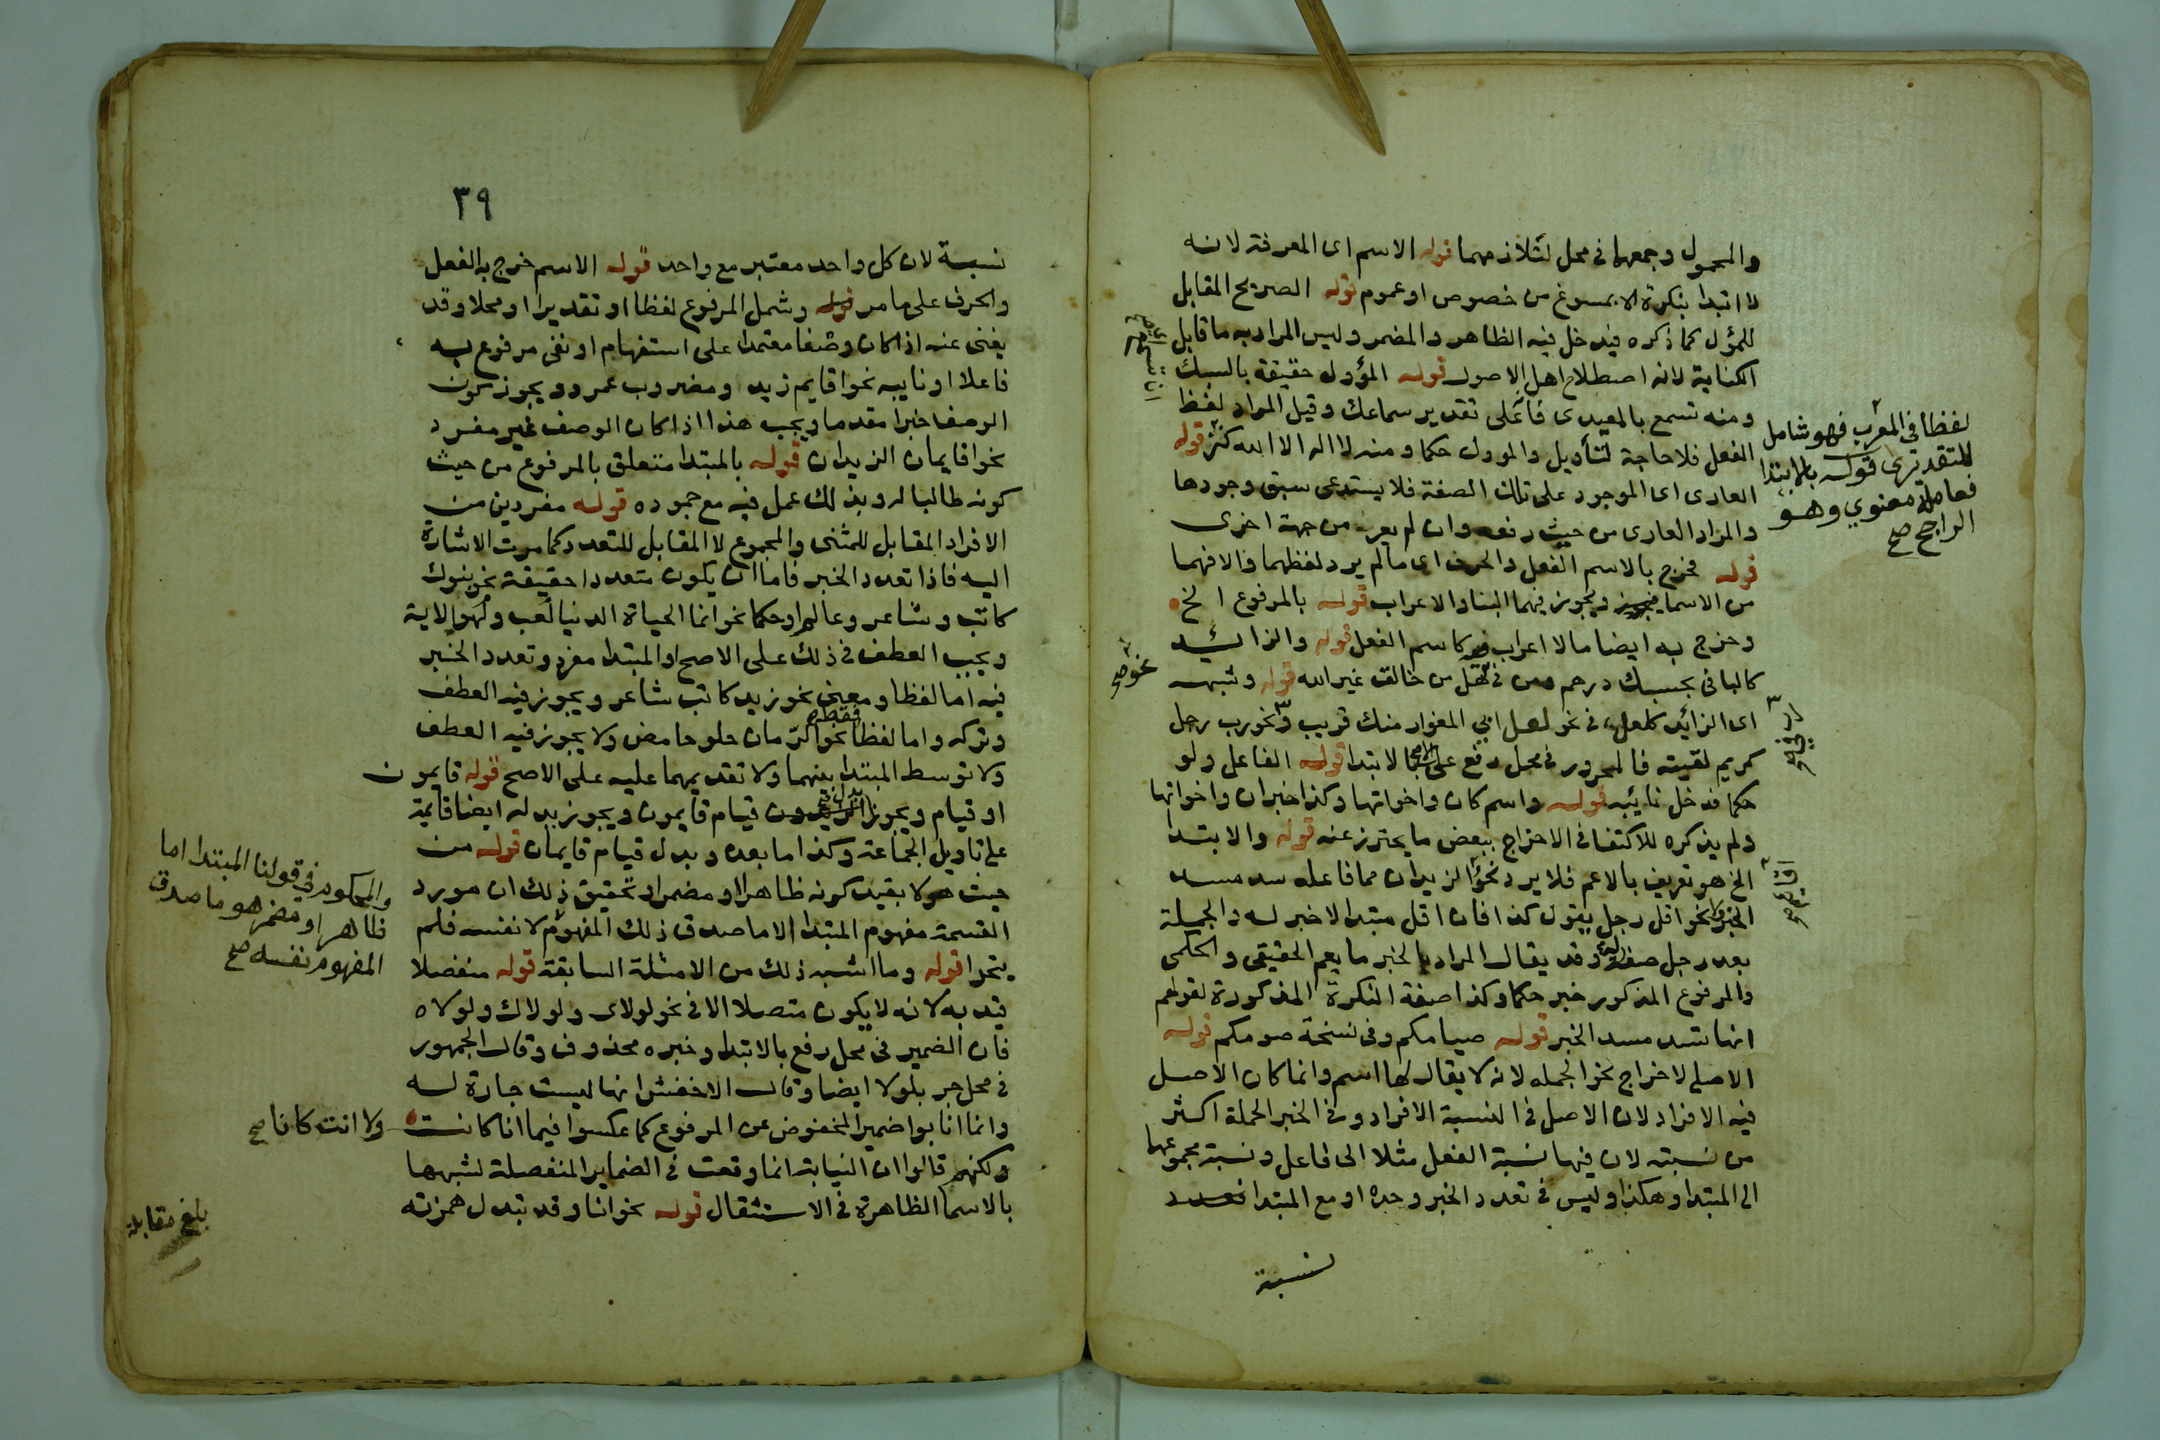 والمحمول وجمعها في محل لثلازمهما قوله الاسم اى المعرفة لانه
لا ابتدا بنكرة الا بمسوغ من خصوص او عموم قوله الصريح المقابل
للمؤل كما ذكره فيدخل فيه الظاهر والمضمر وليس المراد به ما قابل
الكناية لانه اصطلاح اهل الاصول قوله المؤول حقيقة بالسبك
ومنه تسمع بالمعيدى على تقدير سماعك وقيل المراد لفظ
الفعل فلا حاجة لتأويل والموول حكما ومنه لا اله الا الله كنز قوله
العارى اى الموجود على تلك الصفة فلا يستدعى سبق وجودها
والمراد العارى من حيث رفعه وان لم يعر من جهة اخرى
قوله فخرج بالاسم الفعل والحرف اى ما لم يرد لفظهما والا فهما
من الاسما ويجوز فيهما البنا والاعراب قوله بالمرفوع الخ
وخرج به ايضا ما لا اعراب فيه كاسم الفعل قوله والزائد
كالبا فى بحسبك درهم ومن فى هل من خالق غير الله قوله وشبهه
اى الزائد كلعل فى نحو لعل ابي المغوار منك قريب ونحو رب رجل
كريم لقيته فالمجرور فى محل رفع على الابتدا قوله الفاعل ولو
حكما فدخل نائبه قوله واسم كان واخواتها وكذا خبر ان واخواتها
ولم يذكره للاكتفا فى الاخراج ببعض ما يحترز عنه قوله والابتدا
الخ هو تعريف بالاعم فلا يرد نحو الزيدان مما فاعله سد مسد
الخبر ولا نحو اقل رجل يقول كذا فان اقل مبتدا لا خبر له والجملة
بعد رجل صفة له وقد يقال المراد بالخبر ما يعم الحقيقى والحكمى
والمرفوع المذكور خبر حكما وكذا صفة النكرة المذكورة لقولهم
انها تسد مسد الخبر قوله صيامكم وفى نسخة صومكم قوله
الاصلى لاخراج نحو الجملة لانه لا يقال لها اسم وانما كان الاصل
فيه الافراد لان الاصل فى النسبة الافراد وفى الخبر الجملة اكثر
من نسبته لان فيها نسبة الفعل مثلا الى فاعل ونسبة مجموعها
الى المبتدا وهكذا وليس فى تعدد الخبر وحده او مع المبتدا تعدد
نسبة
لفظا فى المعرب فهو شامل
للتقديرى قوله بالابتدا
فعامله معنوي وهو
الراجح صح
نحو صح
٣٩
نسبة لان كل واحد معتبر مع واحد قوله الاسم خرج به الفعل
والحرف على ما مر قوله وشمل المرفوع لفظا او تقديرا او محلا وقد
يغنى عنه اذا كان وصفا معتمدا على استفهام او نفى مرفوع به
فاعلا او نايبه نحو اقايم زيد ومضروب عمرو ويجوز كون
الوصف خبرا مقدما ويجب هذا اذا كان الوصف غير مفرد
نحو اقايمان الزيدان قوله بالمبتدا متعلق بالمرفوع من حيث
كونه طالبا له وبذلك عمل فيه مع جموده قوله مفردين من
الافراد المقابل للمثنى والمجموع لا المقابل للتعدد كما مرت الاشارة
اليه فاذا تعدد الخبر فاما ان يكون متعددا حقيقة نحو بنوك
كاتب وشاعر وعالم او حكما نحو انما الحياة الدنيا لعب ولهو الاية
ويجب العطف فى ذلك على الاصح او المبتدا مفرد وتعدد الخبر
فيه اما لفظا ومعنى نحو زيد كاتب شاعر ويجوز فيه العطف
وتركه واما لفظا فقط نحو الرمان حلو حامض ولا يجوز فيه العطف
ولا توسط المبتدا بينهما ولا تقديمهما عليه على الاصح قوله قايمون
او قيام ويجوز الزيدون قيام قايمون ويجوز بدله ايضا قايمة
على تاويل الجماعة وكذا ما بعده وبدل قيام قايمان قوله من
حيث هو لا بقيد كونه ظاهرا او مضمرا وتحقيق ذلك ان مورد
القسمة مفهوم المبتدا لا ما صدق ذلك المفهوم لا نفسه فلم
يتحرا قوله وما اشبه ذلك من الامثلة السابقة قوله منفصلا
قيد به لانه لا يكون متصلا الا فى نحو لولاى ولولاك ولولاه
فان الضمير فى محل رفع بالابتدا وخبره محذوف وقال الجمهور
فى محل جر بلولا ايضا وقال الاخفش انها ليست جارة له
وانما انابوا ضمير المخفوض عن المرفوع كما عكسوا فيما انا كانت
ولكنهم قالوا ان النيابة انما وقعت فى الضماير المنفصلة لشبهها
بالاسما الظاهرة فى الاستقلال قوله نحو انا وقد تبدل همزته
والمحكوم فى قولنا المبتدا اما
ظاهر او مضمر هو ما صدق
المفهوم نفسه صح
ولا انت كانا صح
بلغ مقابلة